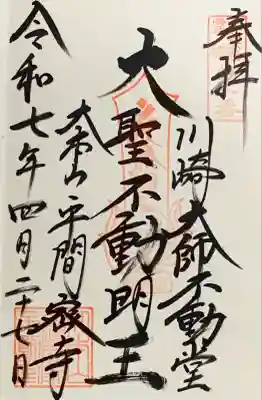 奉拝
川崎大師不動堂
大聖不動明王
大本山平間寺
令和七年四月二十七日